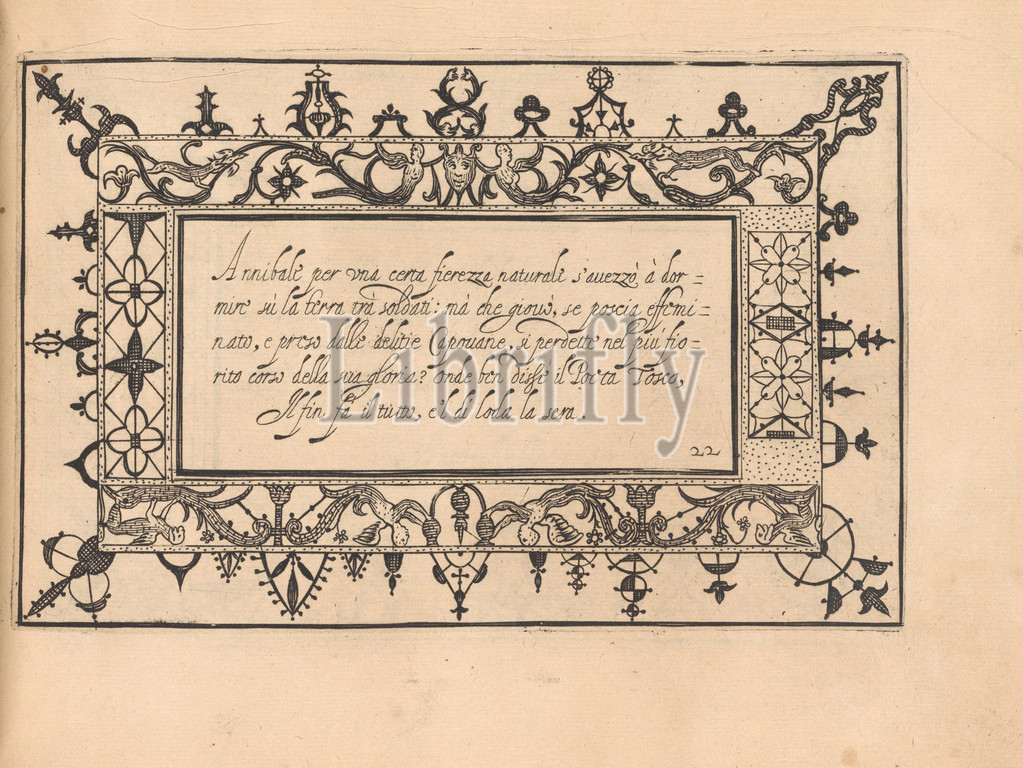 Annibale per vna certa fierezza naturale s'auezzò à dor=
mire sù la terra trà soldati: mà che giouò, se poscia effemi=
nato, e preso dalle delitie Capouane, si perdette nel più fio=
rito corso della sua gloria? Onde ben disse il Poeta Tosco,
Il fin fà il tutto, e'l dì loda la sera.
22
Librifly